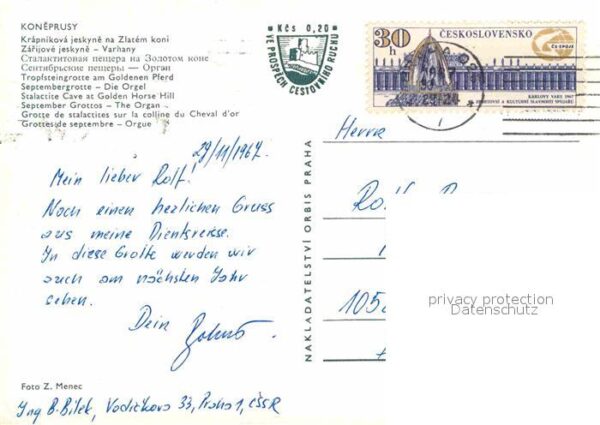 KONĚPRUSY
Krápníková jeskyně na Zlatém koni
Zářijové jeskyně - Varhany
Сталактитовая пещера на Золотом коне
Сентябрьские пещеры — Орган
Tropfsteingrotte am Goldenen Pferd
Septembergrotte - Die Orgel
Stalactite Cave at Golden Horse Hill
September Grottos - The Organ
Grotte de stalactites sur la colline du Cheval d'or
Grottes de septembre - Orgue
Kčs 0,20
VE PROSPĚCH CESTOVNÍHO RUCHU
30h
ČESKOSLOVENSKO
KARLOVY VARY 1967
29/11/1967.
Mein lieber Rolf!
Noch einen herzlichen Gruss
aus meine Dienstreise.
In diese Grotte werden wir
auch am nächsten Jahr
gehen.
Dein
NAKLADATELSTVÍ ORBIS PRAHA
Herrn
105
privacy protection
Datenschutz
Foto Z. Menec
Ing B. Bílek, Vodičkova 33, Praha 1, ČSSR